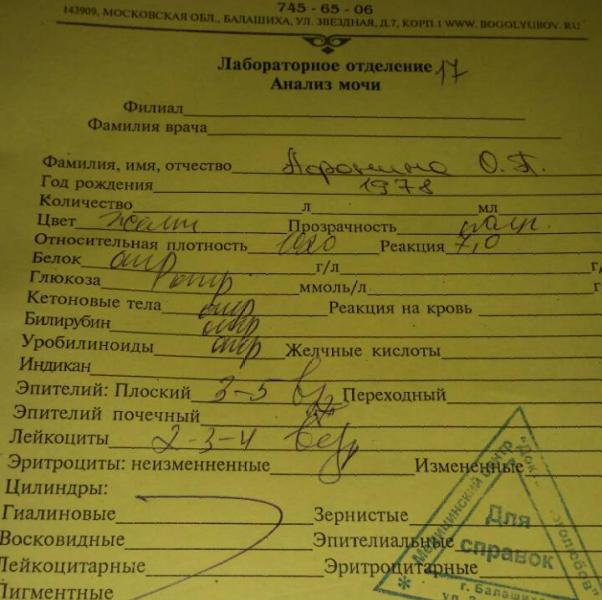 745-65-06
143909, МОСКОВСКАЯ ОБЛ., БАЛАШИХА, УЛ. ЗВЕЗДНАЯ, Д.7, КОРП.1 WWW. BOGOLYUBOV. RU
Лабораторное отделение 17
Анализ мочи
Филиал
Фамилия врача
Фамилия, имя, отчество О. П.
Год рождения 1978
Количество л мл
Цвет Прозрачность
Относительная плотность 1020 Реакция 7,0
Белок отр г/л г/
Глюкоза отр ммоль/л г
Кетоновые тела отр Реакция на кровь
Билирубин отр
Уробилиноиды отр Желчные кислоты
Индикан
Эпителий: Плоский 3-5 Переходный
Эпителий почечный
Лейкоциты 2-3-4
Эритроциты: неизмненные Измененные
Цилиндры:
Гиалиновые Зернистые
Восковидные Эпителиальные
Лейкоцитарные Эритроцитарные
Пигментные
Медицинский центр
Для
справок
г. Балашиха